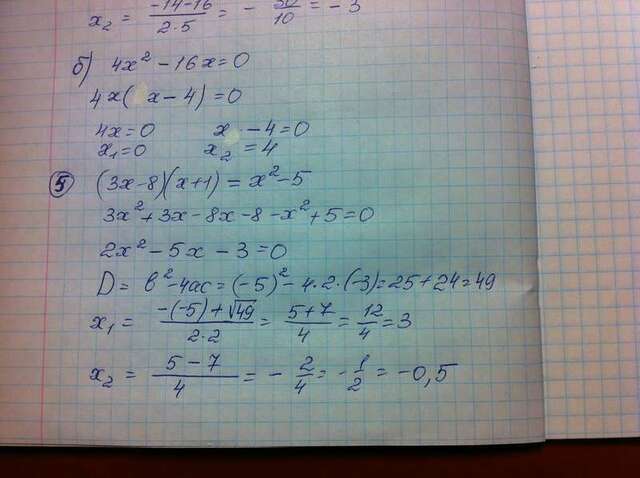 x₂ = (-14-16)/(2·5) = - 30/10 = -3
б) 4x² - 16x = 0
4x( x - 4) = 0
4x = 0 x - 4 = 0
x₁ = 0 x₂ = 4
⑤ (3x-8)(x+1) = x² - 5
3x² + 3x - 8x - 8 - x² + 5 = 0
2x² - 5x - 3 = 0
D = b² - 4ac = (-5)² - 4·2·(-3) = 25 + 24 = 49
x₁ = (-(-5) + √49)/(2·2) = (5+7)/4 = 12/4 = 3
x₂ = (5-7)/4 = - 2/4 = - 1/2 = -0,5